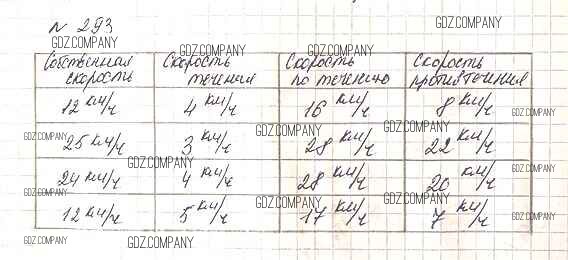 N 293
GDZ.COMPANY
GDZ.COMPANY
GDZ.COMPANY
GDZ.COMPANY
Собственная скорость | Скорость течения | Скорость по течению | Скорость против течения
12 км/ч | 4 км/ч | 16 км/ч | 8 км/ч
GDZ.COMPANY
GDZ.COMPANY
GDZ.COMPANY
GDZ.COMPANY
25 км/ч | 3 км/ч | 28 км/ч | 22 км/ч
GDZ.COMPANY
GDZ.COMPANY
GDZ.COMPANY
24 км/ч | 4 км/ч | 28 км/ч | 20 км/ч
GDZ.COMPANY
GDZ.COMPANY
GDZ.COMPANY
12 км/ч | 5 км/ч | 17 км/ч | 7 км/ч
GDZ.COMPANY
GDZ.COMPANY
GDZ.COMPANY